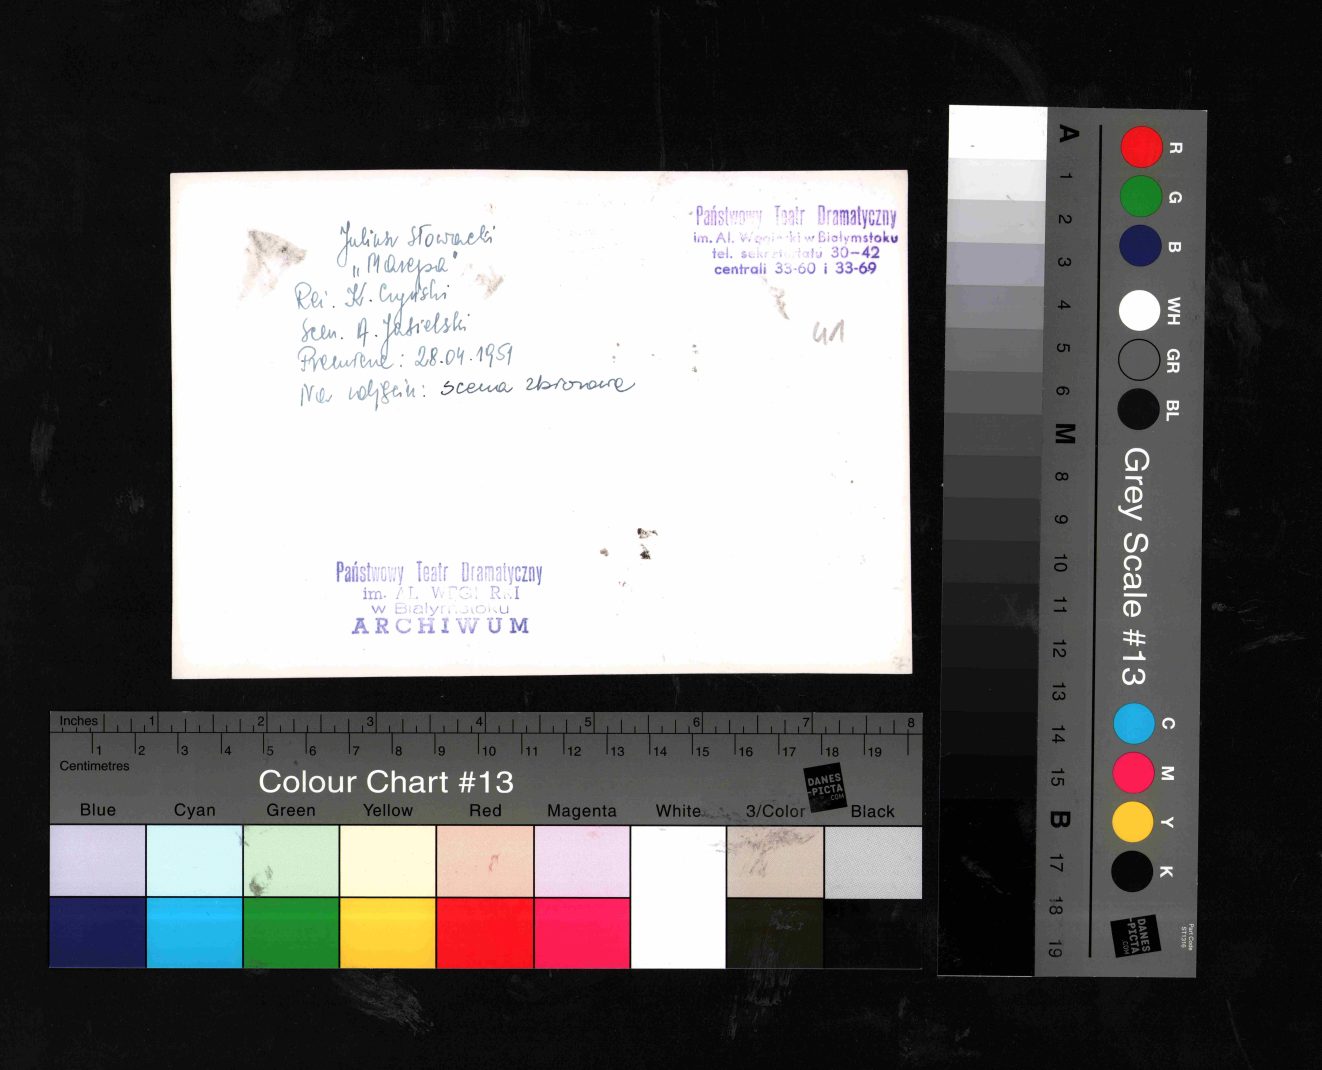 Juliusz Słowacki
„Mazepa"
Reż. K. Czyński
Scen. A. Jasielski
Premiera: 28.04.1951
Na zdjęciu: scena zbiorowa
Państwowy Teatr Dramatyczny
im. Al. w Białymstoku
tel. sekretariatu 30-42
centrali 33-60 i 33-69
41
Państwowy Teatr Dramatyczny
im. AL.
w Białymstoku
ARCHIWUM
Inches 1 2 3 4 5 6 7 8
1 2 3 4 5 6 7 8 9 10 11 12 13 14 15 16 17 18 19
Centimetres
Colour Chart #13
DANES
-PICTA
.COM
Blue Cyan Green Yellow Red Magenta White 3/Color Black
A 1 2 3 4 5 6 M 8 9 10 11 12 13 14 15 B 17 18 19
R G B WH GR BL
Grey Scale #13
C M Y K
DANES
-PICTA
.COM
Part Code
ST1316